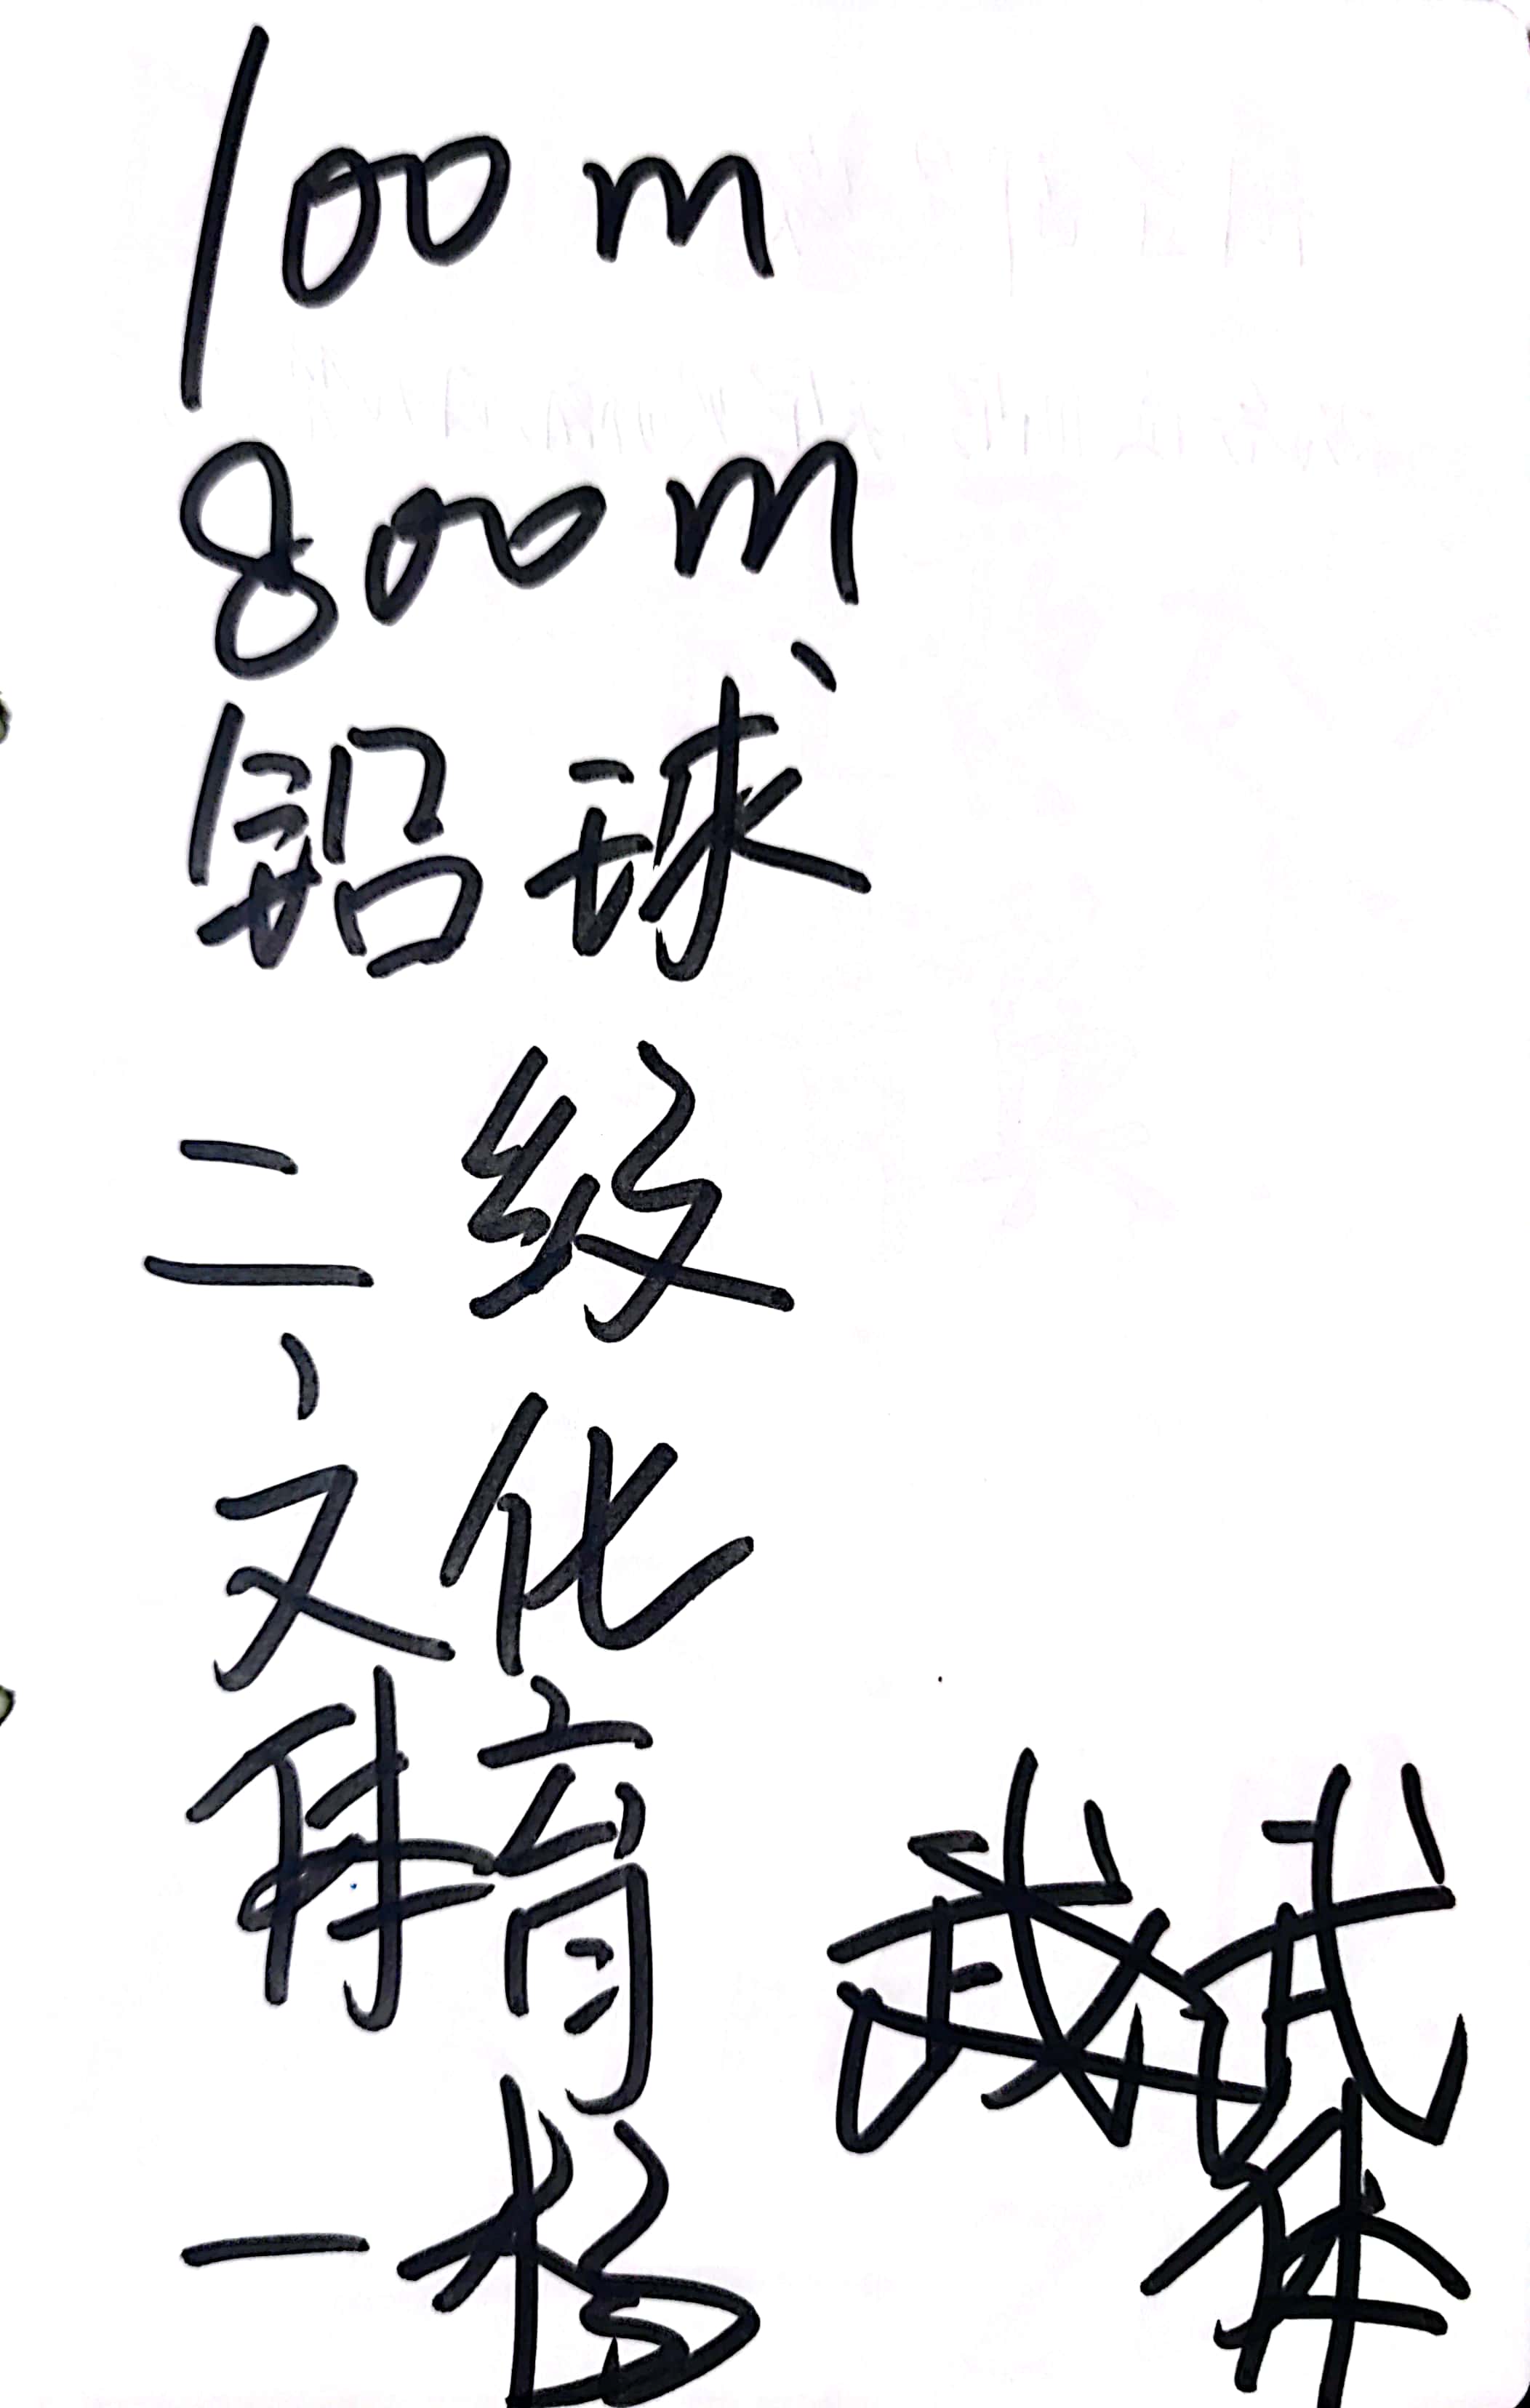 100m
800m
铅球
二级
文化
体育
一杨